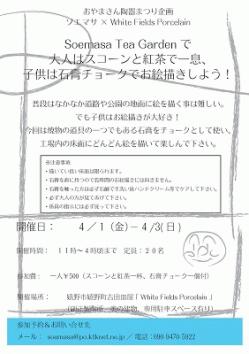 おやまさん陶器まつり企画
ソエマサ × White Fields Porcelain
Soemasa Tea Garden で
大人はスコーンと紅茶で一息、
子供は石膏チョークでお絵描きしよう！
普段はなかなか道路や公園の地面に絵を描く事は難しい。
でも子供はお絵描きが大好き！
今回は焼物の道具の一つでもある石膏をチョークとして使い、
工場内の床面にどんどん絵を描いて楽しんで下さい。
※注意事項
・描いていい床面は限られます。
・必ず大人の方が見てあげて下さい。
開催日： ４／１(金)～４/３(日)
開催時間： １１時～４時頃まで 定員：２０名
参加費： 一人￥500（スコーンと紅茶一杯、石膏チョーク一個付）
開催場所： 嬉野市嬉野町吉田皿屋「White Fields Porcelain」
参加予約＆お問い合せ先
メール： soemasa@po.ktknet.ne.jp ／ 電話：090-9470-5922